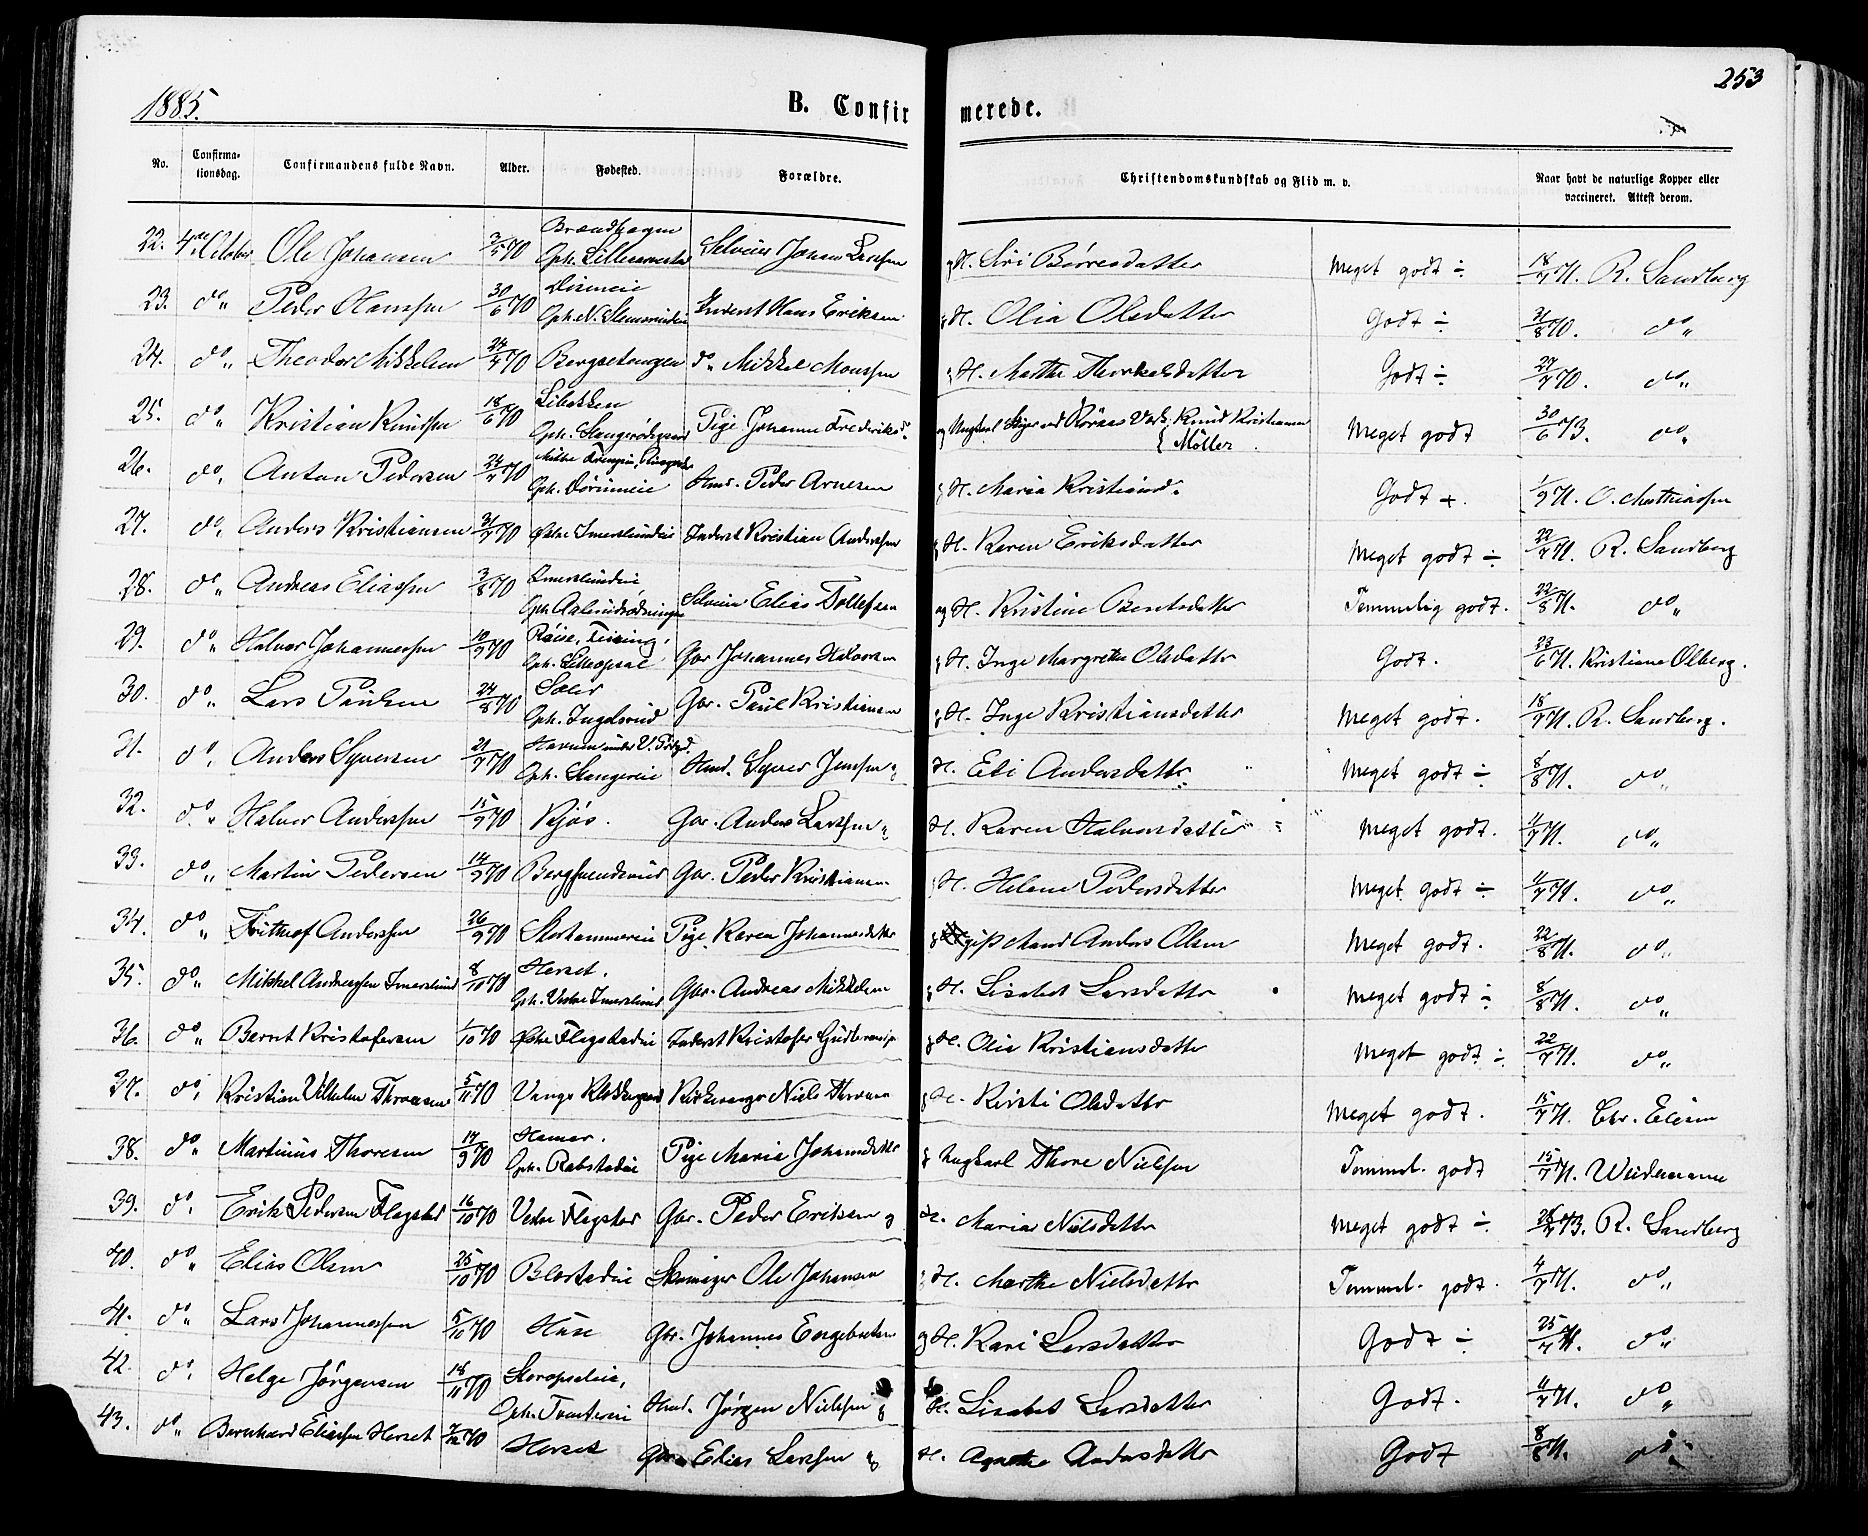 1885.
B. Confirmerede.
253
No. Confirmationsdag. Confirmandens fulde Navn. Alder. Fødested. Forældre. Christendomskundskab og Flid m. v. Naar havt de naturlige Kopper eller vaccineret. Attest derom.
22. 4de October Ole Johansen 3/5 70 Brændhagen Oph. Selveier Johan Larssen og H. Siri Børresdatter Meget godt ÷ 18/7 71. R. Sandberg
23. do „ Peder Hanssen 30/6 70 Oph. N. Inderst Hans Eriksen & H. Olia Olsdatter Godt ÷ 31/8 70. do „
24. do „ Theodor Mikkelsen 24/7 70 Bergsetangen do „ Mikkel Monssen & H. Marthe Thorkelsdatter Godt ÷ 27/7 70. do „
25. do „ Kristian Knudssen 18/6 70 Libakken Oph. Pige Johanne Frederiksd. og Ungkarl Røraas Værk. Knud Kristiansen Møller Meget godt 30/6 73. do „
26. do „ Anton Pedersen 24/7 70 Oph. Hmd. Peder Arnesen & H. Maria Kristiansd. Godt +. 1/9 71. O. Mathiassen
27. do „ Anders Kristiansen 31/7 70 Østre Imerslundeie Inderst Kristian Anderssen & H. Karen Eriksdatter Meget godt ÷ 22/7 71. R. Sandberg
28. do „ Andreas Eliassen 3/8 70 Imerslundeie Oph. Selveier Elias Tollefsen og H. Kristine Berntsdatter Temmelig godt. 22/8 71. do „
29. do „ Halvor Johannessen 10/9 70 Røise, Feiring, Oph. Lilleopsal Gbr Johannes Halvorsen & H. Inge Margrethe Olsdatter Godt. 23/6 71. Kristiane Olberg.
30. do „ Lars Paulsen 24/8 70 Oph. Ingelsrud Gbr. Paul Kristiansen & H. Inge Kristiansdatter Meget godt. 18/7 71. R. Sandberg.
31. do „ Anders Syversen 21/7 70 Oph. Stangeeie Hmd. Syver Jenssen & H. Eli Andersdatter Meget godt ÷ 8/8 71. do „
32. do „ Halvor Anderssen 15/9 70 Kjøs. Gbr. Anders Larssen & H. Karen Halvorsdatter Meget godt. 11/7 71. do „
33. do „ Martin Pedersen 14/9 70 Gbr. Peder Kristiansen & H. Helene Pedersdatter Meget godt ÷ 11/7 71. do „
34. do „ Frithiof Anderssen 26/9 70 Storhammereie Pige Karen Johannesdatter & gift Mand Anders Olsen Meget godt. 22/8 71. do „
35. do „ Mikkel Andreassen Imerslund 8/10 70 Herset. Oph. Vestre Imerslund Gbr. Andreas Mikkelsen & H. Lisabet Larsdatter Meget godt ÷ 8/8 71. do „
36. do „ Bernt Kristofersen 1/10 70 Østre Flagstadeie Inderst Kristofer Gudbrandsen & H. Olia Kristiansdatter Meget godt ÷ 22/7 71. do „
37. do „ Kristian Vilhelm Thoresen 5/11 70 Vangs Klokkergaard Kirkesanger Niels Thoresen & H. Kirsti Olsdatter Meget godt. 15/7 71. Chr. Elison
38. do „ Martinius Thoresen 17/9 70 Hamar. Oph. Rabstadeie Pige Maria Johannesdatter & Ungkarl Thore Nielssen Temmel. godt 15/7 71. Weidemann
39. do „ Erik Pedersen Flagstad 16/10 70 Vestre Flagstad Gbr. Peder Eriksen & H. Maria Nielsdatter Meget godt ÷ 73. R. Sandberg
40. do „ Elias Olsen 25/10 70 Blæstadeie Skomager Ole Johansen & H. Marthe Nielsdatter Temmel. godt. 4/7 71. do „
41. do „ Lars Johannessen 5/10 70 Huse Gbr. Johannes Engebretsen & H. Kari Larsdatter Godt ÷ 25/7 71. do „
42. do „ Helge Jørgensen 18/11 70 Skorapseleie, Oph. Tomtereie Hmd. Jørgen Nielssen & H. Lisabet Larsdatter Godt. 11/7 71. do „
43. do „ Bernhard Eliassen Herset 7/12 70 Herset Gbr. Elias Larssen & H. Agnethe Andersdatter Godt 8/8 71. do „